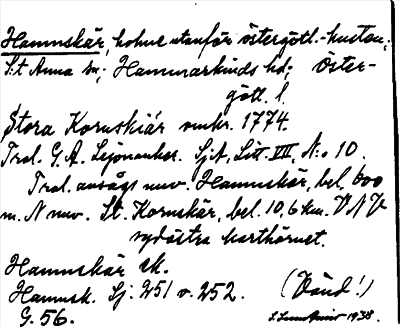 Hamnskär, holme utanför östergötl.-kusten;
S:t Anna sn; Hammarkinds hd; Öster-
götl. l.
Stora Kornskiär omkr. 1774.
Trol. G. A. Leijonancker. SjA, Litt. VII, N:o 10.
Trol. avsågs nuv. Hamnskär, bel. 600
m. N nuv. St. Kornskär, bel. 10,6 km. VNV
sydöstra karthörnet.
Hamnskär ek.
Hamnsk. Sj. 251 o. 252.
G. 56. (Vänd!)
1938.